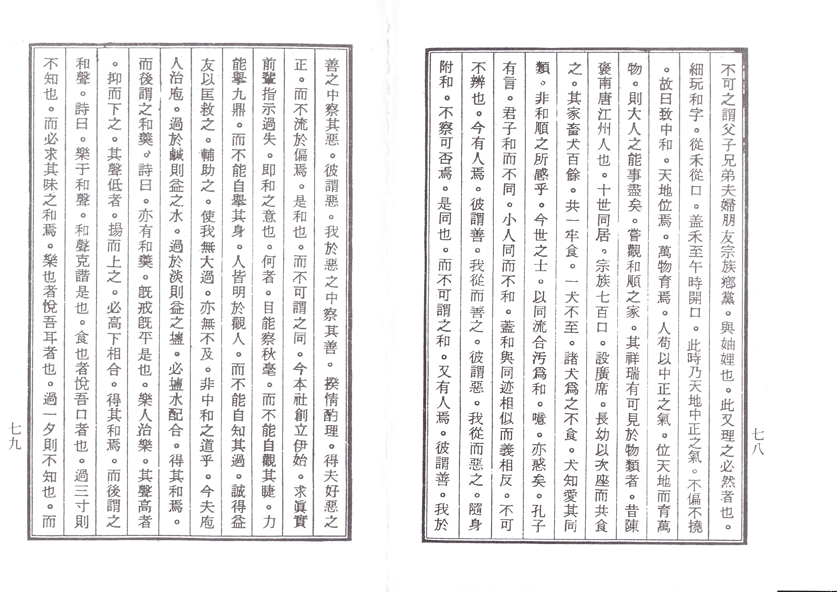 不可之謂父子兄弟夫婦朋友宗族鄉黨。與妯娌也。此又理之必然者也。
細玩和字。從禾從口。盖禾至午時開口。此時乃天地中正之氣。不偏不撓
。故曰致中和。天地位焉。萬物育焉。人苟以中正之氣。位天地而育萬
物。則大人之能事盡矣。嘗觀和順之家。其祥瑞有可見於物類者。昔陳
褒南唐江州人也。十世同居。宗族七百口。設廣席。長幼以次座而共食
之。其家畜犬百餘。共一牢食。一犬不至。諸犬爲之不食。犬知愛其同
類。非和順之所感乎。今世之士。以同流合汚爲和。噫。亦惑矣。孔子
有言。君子和而不同。小人同而不和。蓋和與同迹相似而義相反。不可
不辨也。今有人焉。彼謂善。我從而善之。彼謂惡。我從而惡之。隨身
附和。不察可否焉。是同也。而不可謂之和。又有人焉。彼謂善。我於
七八
善之中察其惡。彼謂惡。我於惡之中察其善。揆情酌理。得夫好惡之
正。而不流於偏焉。是和也。而不可謂之同。今本社創立伊始。求眞實
前輩指示過失。即和之意也。何者。目能察秋毫。而不能自觀其睫。力
能擧九鼎。而不能自擧其身。人皆明於觀人。而不能自知其過。誠得益
友以匡救之。輔助之。使我無大過。亦無不及。非中和之道乎。今夫庖
人治庖。過於鹹則益之水。過於淡則益之塩。必塩水配合。得其和焉。
而後謂之和羹。詩曰。亦有和羹。旣戒旣平是也。樂人治樂。其聲高者
。抑而下之。其聲低者。揚而上之。必高下相合。得其和焉。而後謂之
和聲。詩曰。樂于和聲。和聲克諧是也。食也者悅吾口者也。過三寸則
不知也。而必求其味之和焉。樂也者悅吾耳者也。過一夕則不知也。而
七九